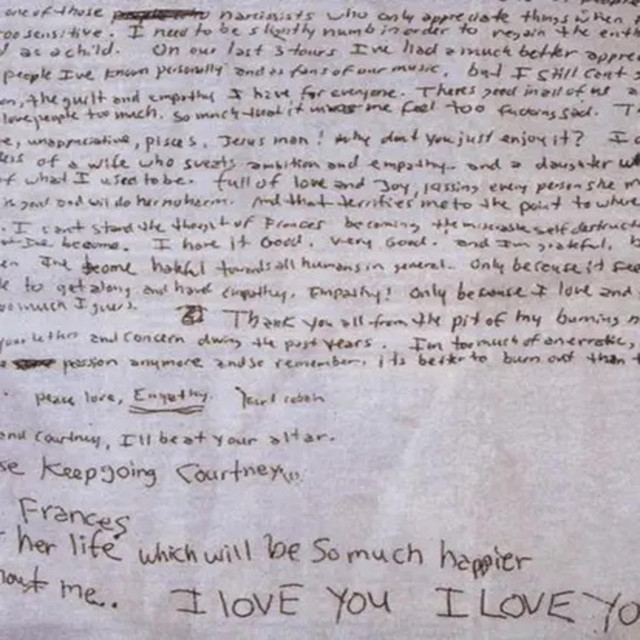 one of those narcissists who only appreciate things when
too sensitive. I need to be slightly numb in order to regain the enth
as a child. On our last 3 tours I've had a much better appre
people I've known personally and as fans of our music, but I still can't
the guilt and empathy I have for everyone. There's good in all of us a
love people too much. So much that it makes me feel too fucking sad. T
unappreciative, pisces, Jesus man! why don't you just enjoy it? I
of a wife who sweats ambition and empathy. and a daughter w
of what I used to be. full of love and joy, kissing every person she m
is good and will do her no harm. And that terrifies me to the point to where
I can't stand the thought of Frances becoming the miserable self destruct
I've become. I have it Good. very Good. and I'm grateful, b
I've become hateful towards all humans in general. Only because it see
to get along and have empathy. Empathy! Only because I love and
much I guess. Thank you all from the pit of my burning n
your letters and concern during the past years. I'm too much of an erratic,
passion anymore and so remember, its better to burn out than t
peace love, Empathy. Kurt Cobain
and Courtney, I'll be at your altar.
Keep going Courtney
Frances
her life which will be so much happier
me.. I LOVE YOU I LOVE YO